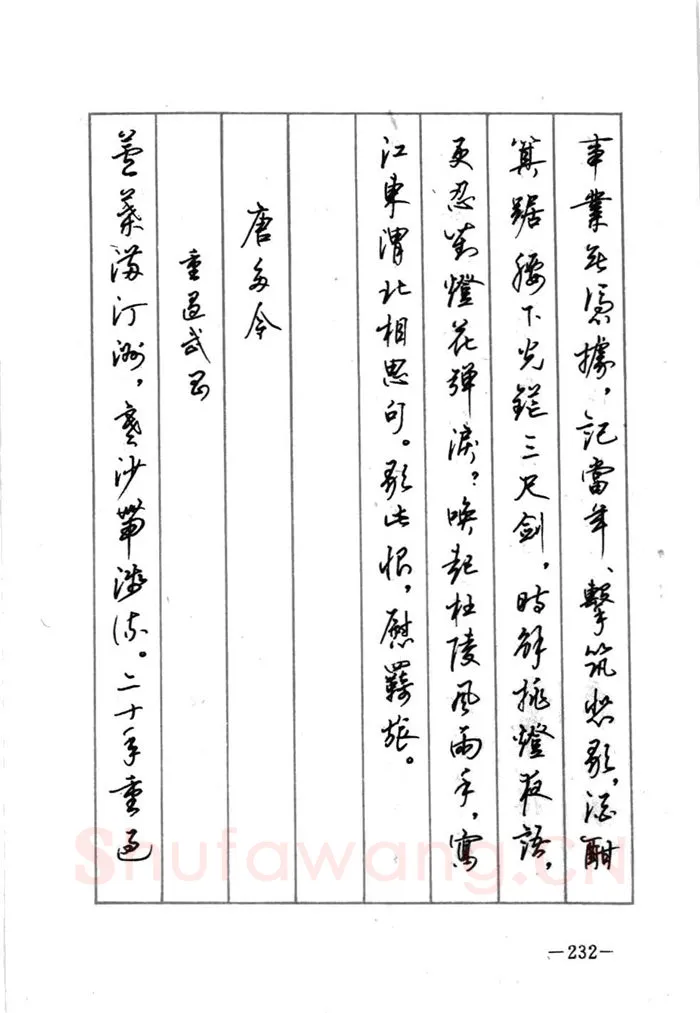 事業無憑據，記當年、擊筑悲歌，酒酣
箕踞腰下光鋩三尺劍，時解挑燈夜語，
更忍對燈花彈淚？喚起杜陵風雨手，寫
江東渭北相思句。歌此恨，慰羈旅。
唐多令
重過武昌
蘆葉滿汀洲，寒沙帶淺流。二十年重過
Shufawang.CN
—232—